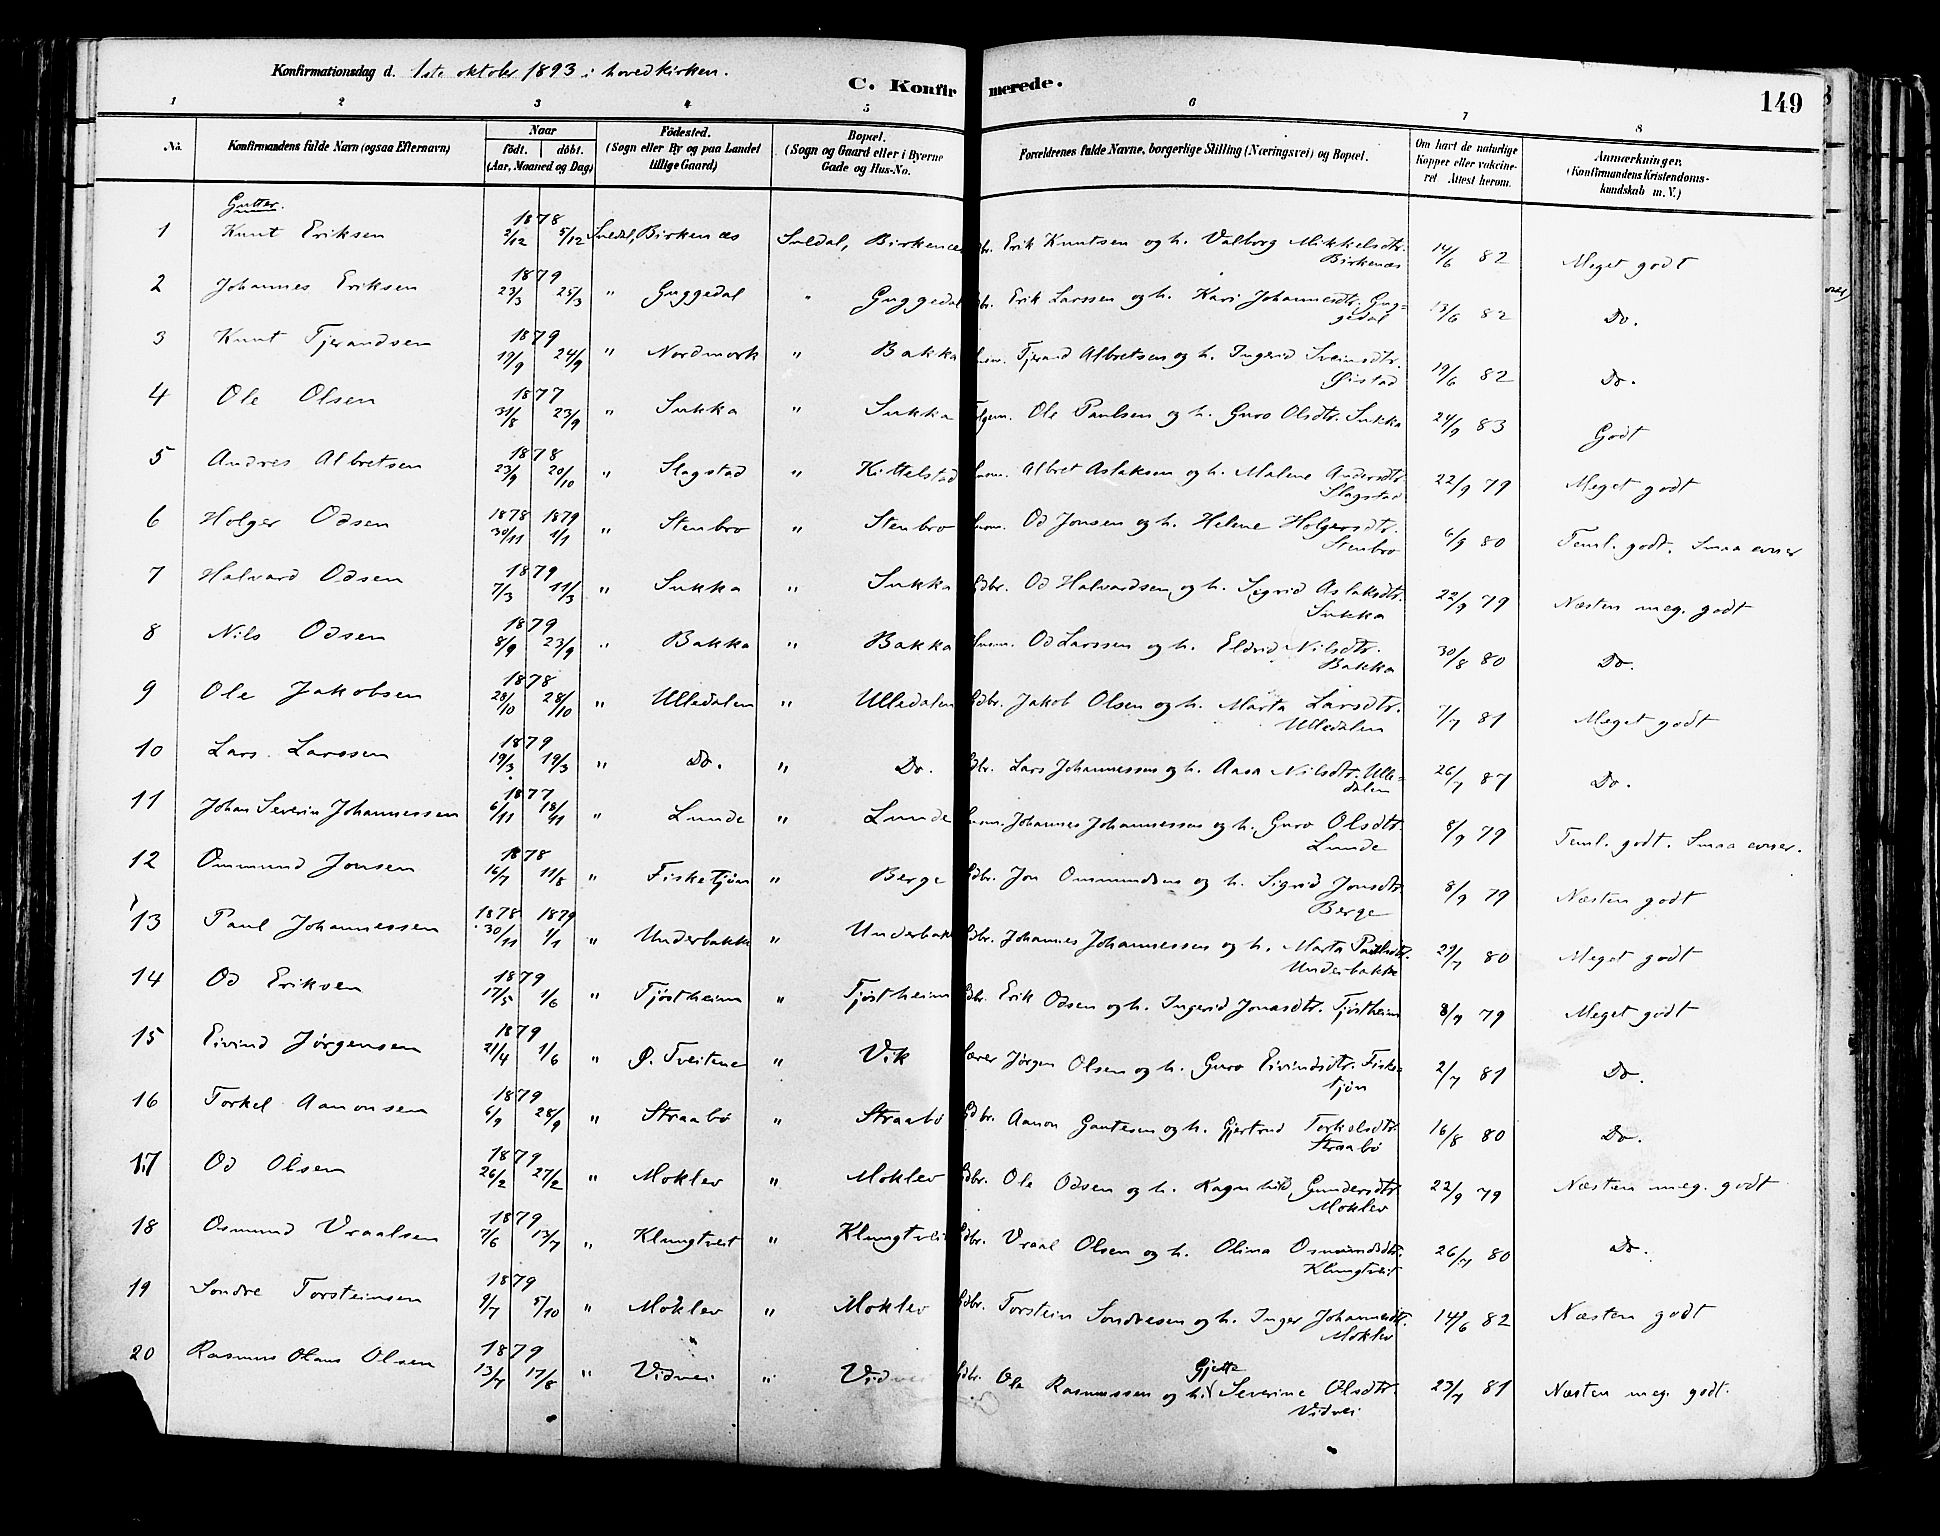 Konfirmationsdag d. 1ste oktober 1893 i hovedkirken.
C. Konfirmerede.
149
1 2 3 4 5 6 7 8
No. Konfirmandens fulde Navn (ogsaa Efternavn) Naar födt. döbt. (Aar, Maaned og Dag) Födested. (Sogn eller By og paa Landet tillige Gaard) Bopæl. (Sogn og Gaard eller i Byerne Gade og Hus-No. Forældrenes fulde Navne, borgerlige Stilling (Næringsvei) og Bopæl. Om havt de naturlige Kopper eller vakcineret Attest herom. Anmærkninger. (Konfirmandens Kristendomskundskab m. V.)
Gutter.
1 Knut Eriksen 1878 2/12 5/12 Suldal, Birkenæs Suldal, Birkenæs Gdbr. Erik Knutsen og h. Valborg Mikkelsdtr. Birkenæs 14/6 82 Meget godt
2 Johannes Eriksen 1879 23/3 25/3 " Guggedal " Guggedal Gdbr. Erik Larssen og h. Kari Johannesdtr. Guggedal 13/6 82 Do.
3 Knut Tjerandsen 1879 19/9 24/9 " Nordmork " Bakka Husm. Tjerand Albretsen og h. Ingerid Sveinsdtr. Øistad 19/6 82 Do.
4 Ole Olsen 1877 31/8 23/9 " Sukka " Sukka Ole Paulsen og h. Guro Olsdtr. Sukka 24/9 83 Godt
5 Andres Albretsen 1878 23/9 20/10 " Slagstad " Kittelstad Husm. Albret Aslaksen og h. Malene Andersdtr. Slagstad 22/9 79 Meget godt
6 Holger Odsen 1878 30/11 1879 1/1 " Stenbro " Stenbro Husm. Od Jonsen og h. Helene Holgersdtr. Stenbro 6/9 80 Teml. godt. Smaa evner
7 Halvard Odsen 1879 7/3 11/3 " Sukka " Sukka Gdbr. Od Halvardsen og h. Sigrid Aslaksdtr. Sukka 22/9 79 Næsten meg. godt
8 Nils Odsen 1879 8/9 23/9 " Bakka " Bakka Husm. Od Larssen og h. Eldrid Nilsdtr. Bakka 30/8 80 Do.
9 Ole Jakobsen 1878 28/10 28/10 " Ulledalen " Ulledalen Gdbr. Jakob Olsen og h. Marta Larsdtr. Ulledalen 7/7 81 Meget godt
10 Lars Larssen 1879 19/3 19/3 " Do. " Do. Gdbr. Lars Johannessen og h. Aasa Nilsdtr. Ulledalen 26/7 87 Do.
11 Johan Severin Johannessen 1877 6/11 18/11 " Lunde " Lunde Husm. Johannes Johannessen og h. Guro Olsdtr. Lunde 8/9 79 Teml. godt. Smaa evner.
12 Ommund Jonsen 1878 16/7 11/8 " Fisketjøn " Berge Gdbr. Jon Ommundsen og h. Sigrid Jonsdtr. Berge 8/9 79 Næsten godt
13 Paul Johannessen 1878 30/11 1879 1/1 " Underbakke " Underbakke Gdbr. Johannes Johannessen og h. Marta Paulsdtr. Underbakke 29/7 80 Meget godt
14 Od Eriksen 1879 17/5 1/6 " Tjøstheim " Tjøstheim Gdbr. Erik Odsen og h. Ingerid Jonasdtr. Tjøstheim 8/9 79 Meget godt
15 Eivind Jørgensen 1879 21/4 1/6 " Ø. Tveitene " Vik Lærer Jørgen Olsen og h. Guro Eivindsdtr. Fisketjøn 2/7 81 Do.
16 Torkel Aanonsen 1879 6/9 28/9 " Straabø " Straabø Gdbr. Aanon Gautesen og h. Gjertrud Torkelsdtr. Straabø 16/8 80 Do.
17 Od Olsen 1879 26/2 27/2 " Moklev " Moklev Gdbr. Ole Odsen og h. Ragnhild Gundersdtr. Moklev 22/9 79 Næsten meg. godt
18 Osmund Vraalsen 1879 7/6 13/7 " Klungtveit " Klungtveit Gdbr. Vraal Olsen og h. Olina Osmundsdtr. Klungtveit 26/7 80 Do.
19 Sondre Torsteinsen 1879 9/7 5/10 " Moklev " Moklev Gdbr. Torstein Sondresen og h. Inger Johannesdtr. Moklev 14/6 82 Næsten godt
20 Rasmus Olaus Olsen 1879 13/7 17/8 " Vidvei " Vidvei Gdbr. Ole Rasmussen og h. Severine Olsdtr. Vidvei 23/7 81 Næsten meg. godt.